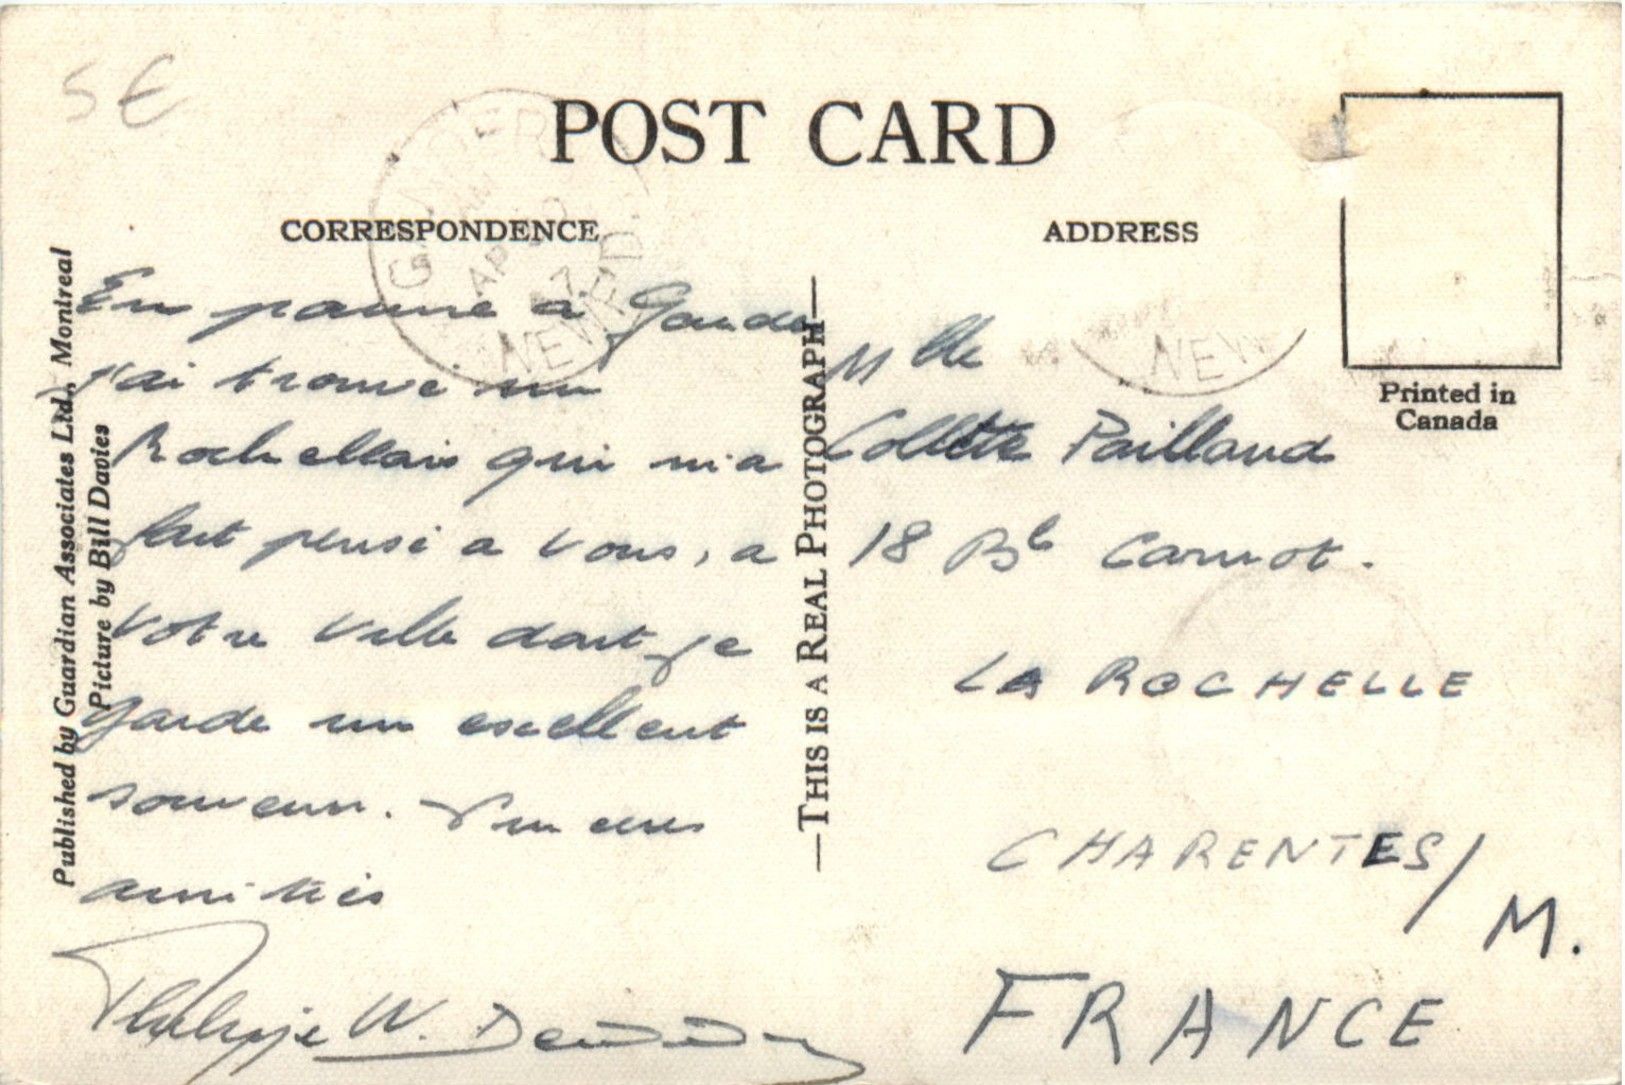 5€
POST CARD
CORRESPONDENCE
ADDRESS
Printed in
Canada
Published by Guardian Associates Ltd., Montreal
Picture by Bill Davies
—THIS IS A REAL PHOTOGRAPH—
GANDER
AP
NEWF'D.
NEW
En panne à Gander
j'ai trouvé un
Rochellais qui m'a
fait pensé a vous, a
votre ville dont je
garde un excellent
souvenir. Sincères
amitiés
Philippe W.
Mlle
Collette Paillaud
18 Bd Carnot.
LA ROCHELLE
CHARENTES/
M.
FRANCE